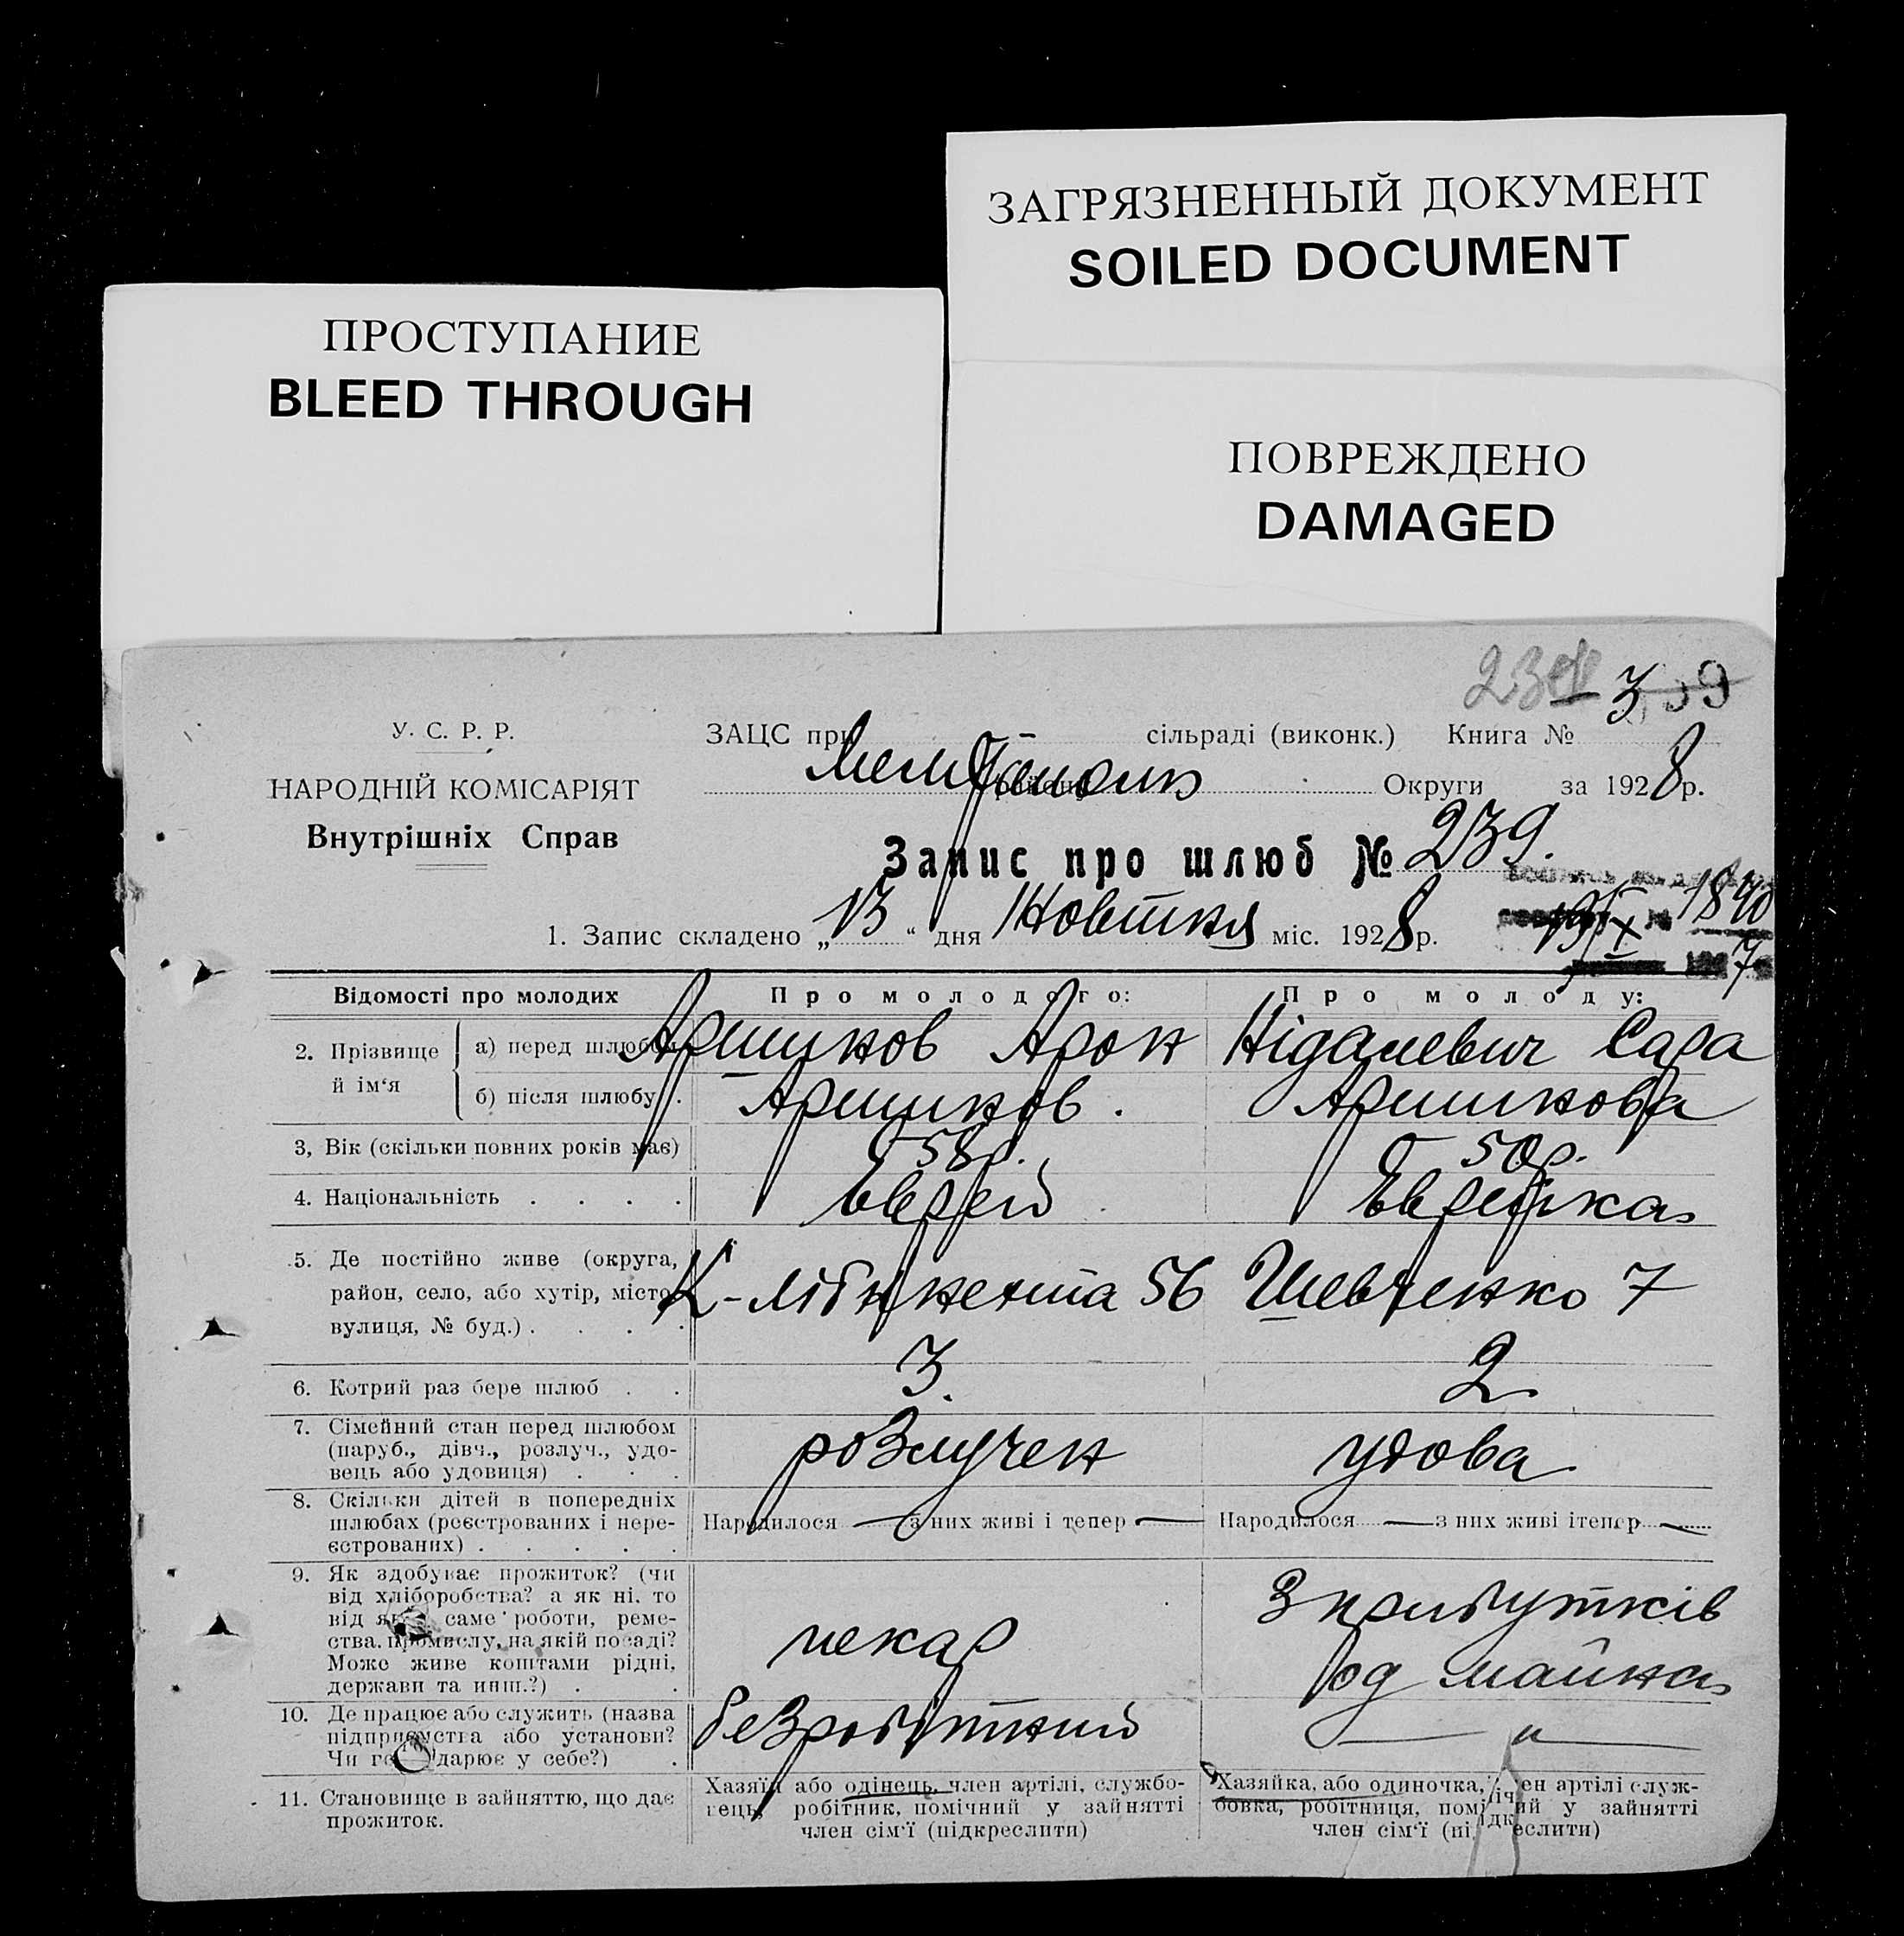 ЗАГРЯЗНЕННЫЙ ДОКУМЕНТ
SOILED DOCUMENT
ПРОСТУПАНИЕ
BLEED THROUGH
ПОВРЕЖДЕНО
DAMAGED
У. С. Р. Р.
НАРОДНІЙ КОМІСАРІЯТ
Внутрішніх Справ
ЗАЦС при сільраді (виконк.) Книга № 3
району Округи за 1928 р.
Запис про шлюб № 239.
1. Запис складено „13“ дня Жовтня міс. 1928 р.
1840
Відомості про молодих Про молодого: Про молоду:
2. Прізвище й ім‘я
а) перед шлюбом Аршинков Арон Нідалевич Сара
б) після шлюбу . Аршинков. Аршинкова
3, Вік (скільки повних років має) 58р. 50р.
4. Національність . . . . Еврей Еврейка
5. Де постійно живе (округа, район, село, або хутір, місто, вулиця, № буд.) . . . . К-Лібкнехта 56 Шевченко 7
6. Котрий раз бере шлюб . . 3. 2
7. Сімейний стан перед шлюбом (паруб., дівч., розлуч., удовець або удовиця) . . . розлучен удова
8. Скільки дітей в попередніх шлюбах (реєстрованих і нереєстрованих) . . . . . Народилося — з них живі і тепер — Народилося — з них живі і тепер —
9. Як здобуває прожиток? (чи від хліборобства? а як ні, то від якої саме роботи, ремества, промислу, на якій посаді? Може живе коштами рідні, держави та инш.?) . . пекар З прибутків од майна
10. Де працює або служить (назва підприємства або установи? Чи господарює у себе?) . безробітний — „ —
11. Становище в зайняттю, що дає прожиток.
Хазяїн або одінець, член артілі, службовець, робітник, помічний у зайнятті член сім‘ї (підкреслити)
Хазяйка, або одиночка, член артілі службовка, робітниця, помічний у зайнятті член сім‘ї (підкреслити)